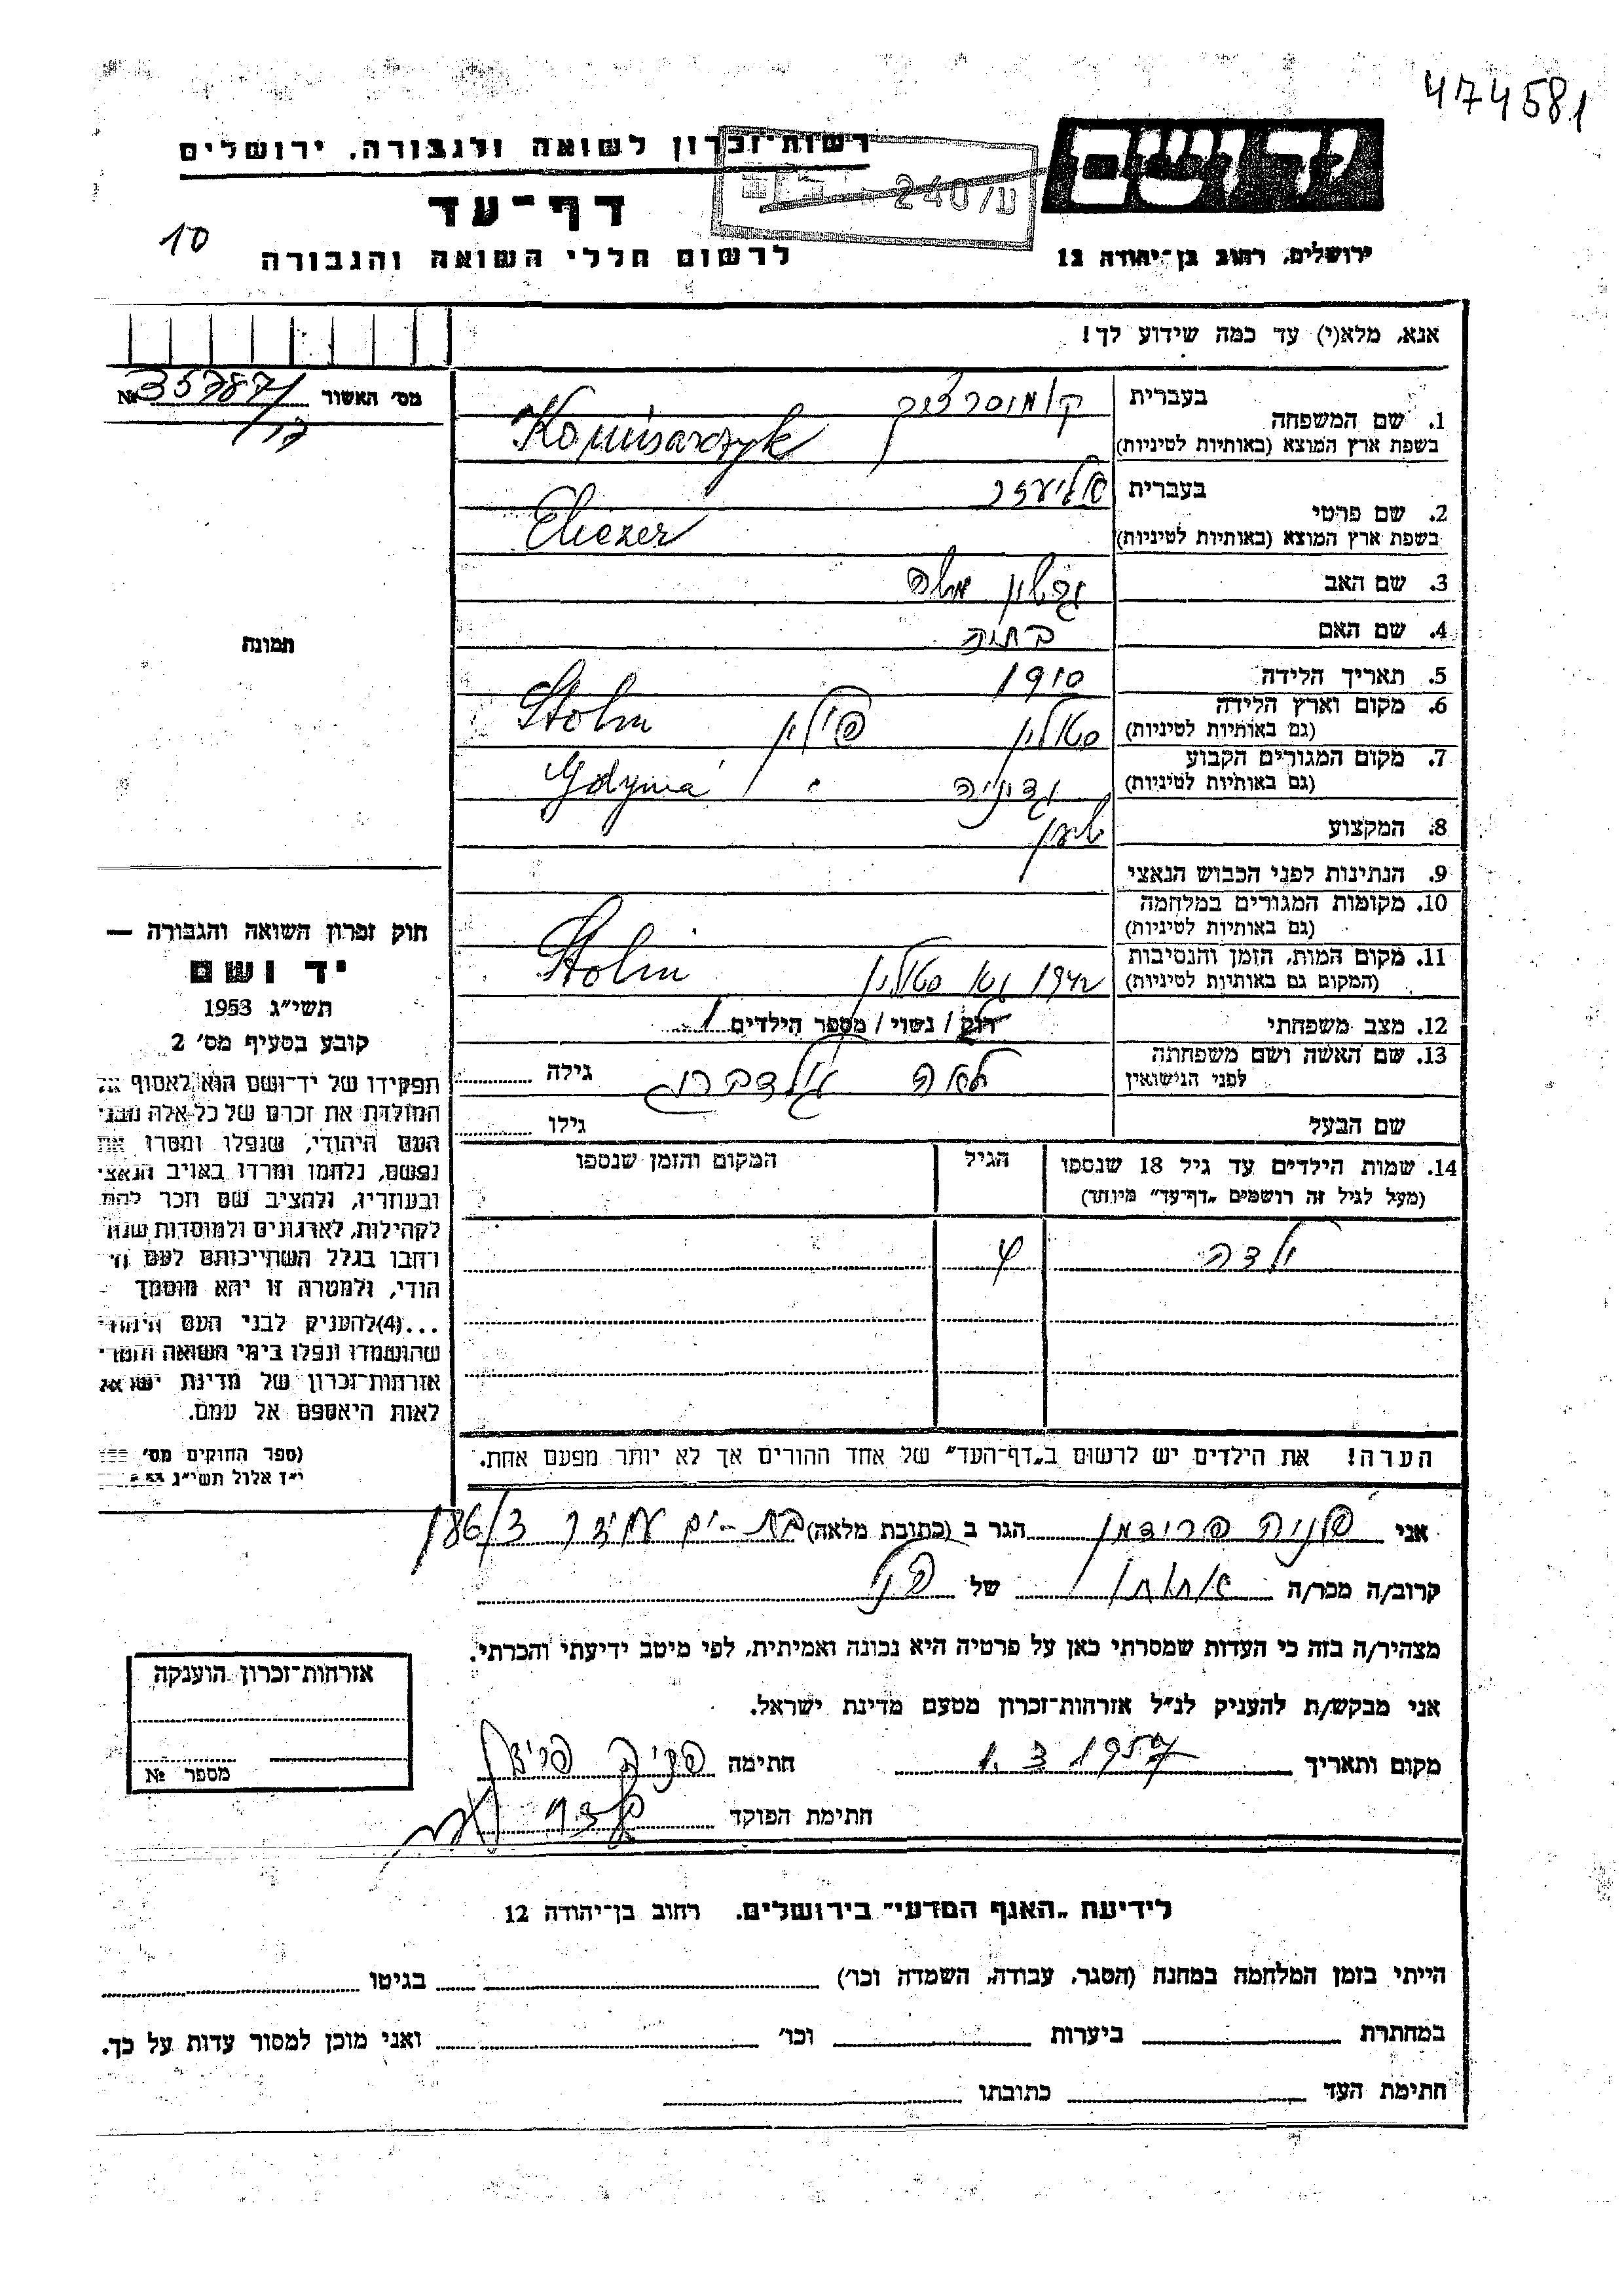 474581
יד ושם
רשות־זכרון לשואה ולגבורה, ירושלים
ע/240
דף־עד
10
ירושלים, רחוב בן־יהודה 12
לרשום חללי השואה והגבורה
אנא, מלא(י) עד כמה שידוע לך!
מס׳ האשור № 35787/
1. שם המשפחה
בעברית
בשפת ארץ המוצא (באותיות לטיניות)
Komisarczyk
2. שם פרטי
בעברית אליעזר
בשפת ארץ המוצא (באותיות לטיניות)
Eliezer
3. שם האב גרשון משה
4. שם האם בתיה
5. תאריך הלידה 1910
6. מקום וארץ הלידה
(גם באותיות לטיניות)
סטולין פולין Stolin
7. מקום המגורים הקבוע
(גם באותיות לטיניות)
גדיניה Gdynia
8. המקצוע שען
9. הנתינות לפני הכבוש הנאצי
10. מקומות המגורים במלחמה
(גם באותיות לטיניות)
11. מקום המות, הזמן והנסיבות
(המקום גם באותיות לטיניות)
1942 גטו סטולין Stolin
12. מצב משפחתי רוק / נשוי / מספר הילדים 1
13. שם האשה ושם משפחתה
לפני הנישואין
לאה גולדברג גילה
שם הבעל גילו
14. שמות הילדים עד גיל 18 שנספו
(מעל לגיל זה רושמים „דף־עד” מיוחד)
הגיל
המקום והזמן שנספו
ילדה 4
הערה! את הילדים יש לרשום ב„דף־העד” של אחד ההורים אך לא יותר מפעם אחת.
תמונה
חוק זכרון השואה והגבורה —
יד ושם
תשי״ג 1953
קובע בסעיף מס׳ 2
תפקידו של יד־ושם הוא לאסוף אל
המולדת את זכרם של כל אלה מבני
העם היהודי, שנפלו ומסרו את
נפשם, נלחמו ומרדו באויב הנאצי
ובעוזריו, ולהציב שם וזכר להם,
לקהילות, לארגונים ולמוסדות שנח־
רחבו בגלל השתייכותם לעם הי־
הודי, ולמטרה זו יהא מוסמך
...(4)להעניק לבני העם היהודי
שהושמדו ונפלו בימי השואה והמרי
אזרחות־זכרון של מדינת ישראל
לאות היאספם אל עמם.
(ספר החוקים מס׳
י״ז אלול תשי״ג
אני פניה פרידמן הגר ב (כתובת מלאה) בת-ים 186/3
קרוב/ה מכר/ה אחות של
מצהיר/ה בזה כי העדות שמסרתי כאן על פרטיה היא נכונה ואמיתית, לפי מיטב ידיעתי והכרתי.
אני מבקש/ת להעניק לנ״ל אזרחות־זכרון מטעם מדינת ישראל.
מקום ותאריך 1.3 1957 חתימה
חתימת הפוקד
אזרחות־זכרון הוענקה
מספר №
לידיעת „האגף המדעי” בירושלים, רחוב בן־יהודה 12
הייתי בזמן המלחמה במחנה (הסגר, עבודה, השמדה וכו׳) בגיטו
במחתרת ביערות וכו׳ ואני מוכן למסור עדות על כך.
חתימת העד כתובתו